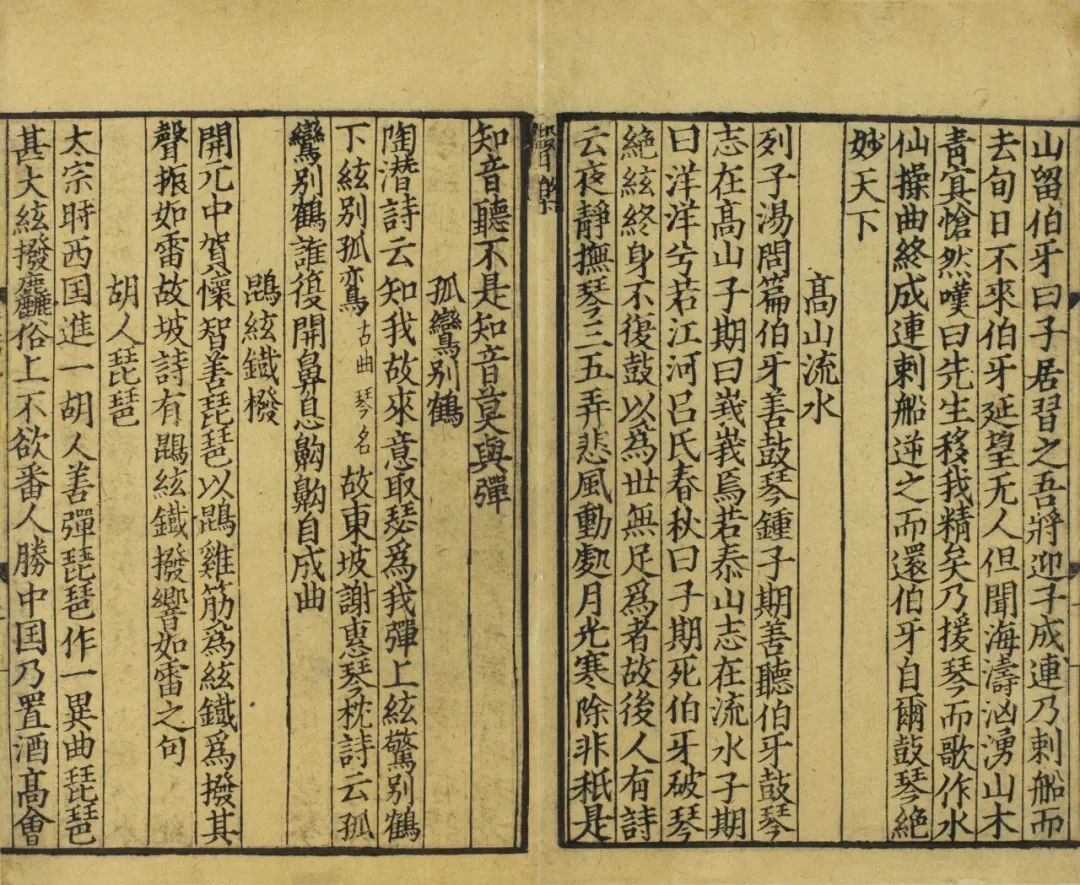 山留伯牙曰子居習之吾將迎子成連乃刺船而
去旬日不來伯牙延望无人但聞海濤汹湧山木
青㝠愴然嘆曰先生移我精矣乃援琴而歌作水
仙操曲終成連刺船逆之而還伯牙自爾鼓琴絶
妙天下
高山流水
列子湯問篇伯牙善鼓琴鍾子期善聽伯牙鼓琴
志在高山子期曰峩峩焉若泰山志在流水子期
曰洋洋兮若江河吕氏春秋曰子期死伯牙破琴
絶絃終身不復鼓以為世無足爲者故後人有詩
云夜静撫琴三五弄悲風動處月光寒除非秖是
知音聽不是知音莫與彈
孤鸞别鶴
陶潜詩云知我故來意取瑟爲我彈上絃驚别鶴
下絃别孤鸾古曲琴名故東坡謝惠琴枕詩云孤
鸞别鶴誰復聞鼻息齁齁自成曲
鵾絃鐡撥
開元中賀懷智善琵琶以鵾雞筋爲絃鐡爲撥其
聲振如雷故坡詩有鵾絃鐡撥響如雷之句
胡人琵琶
太宗時西国進一胡人善彈琵琶作一異曲琵琶
甚大絃撥麤俗上不欲番人勝中国乃置酒髙會